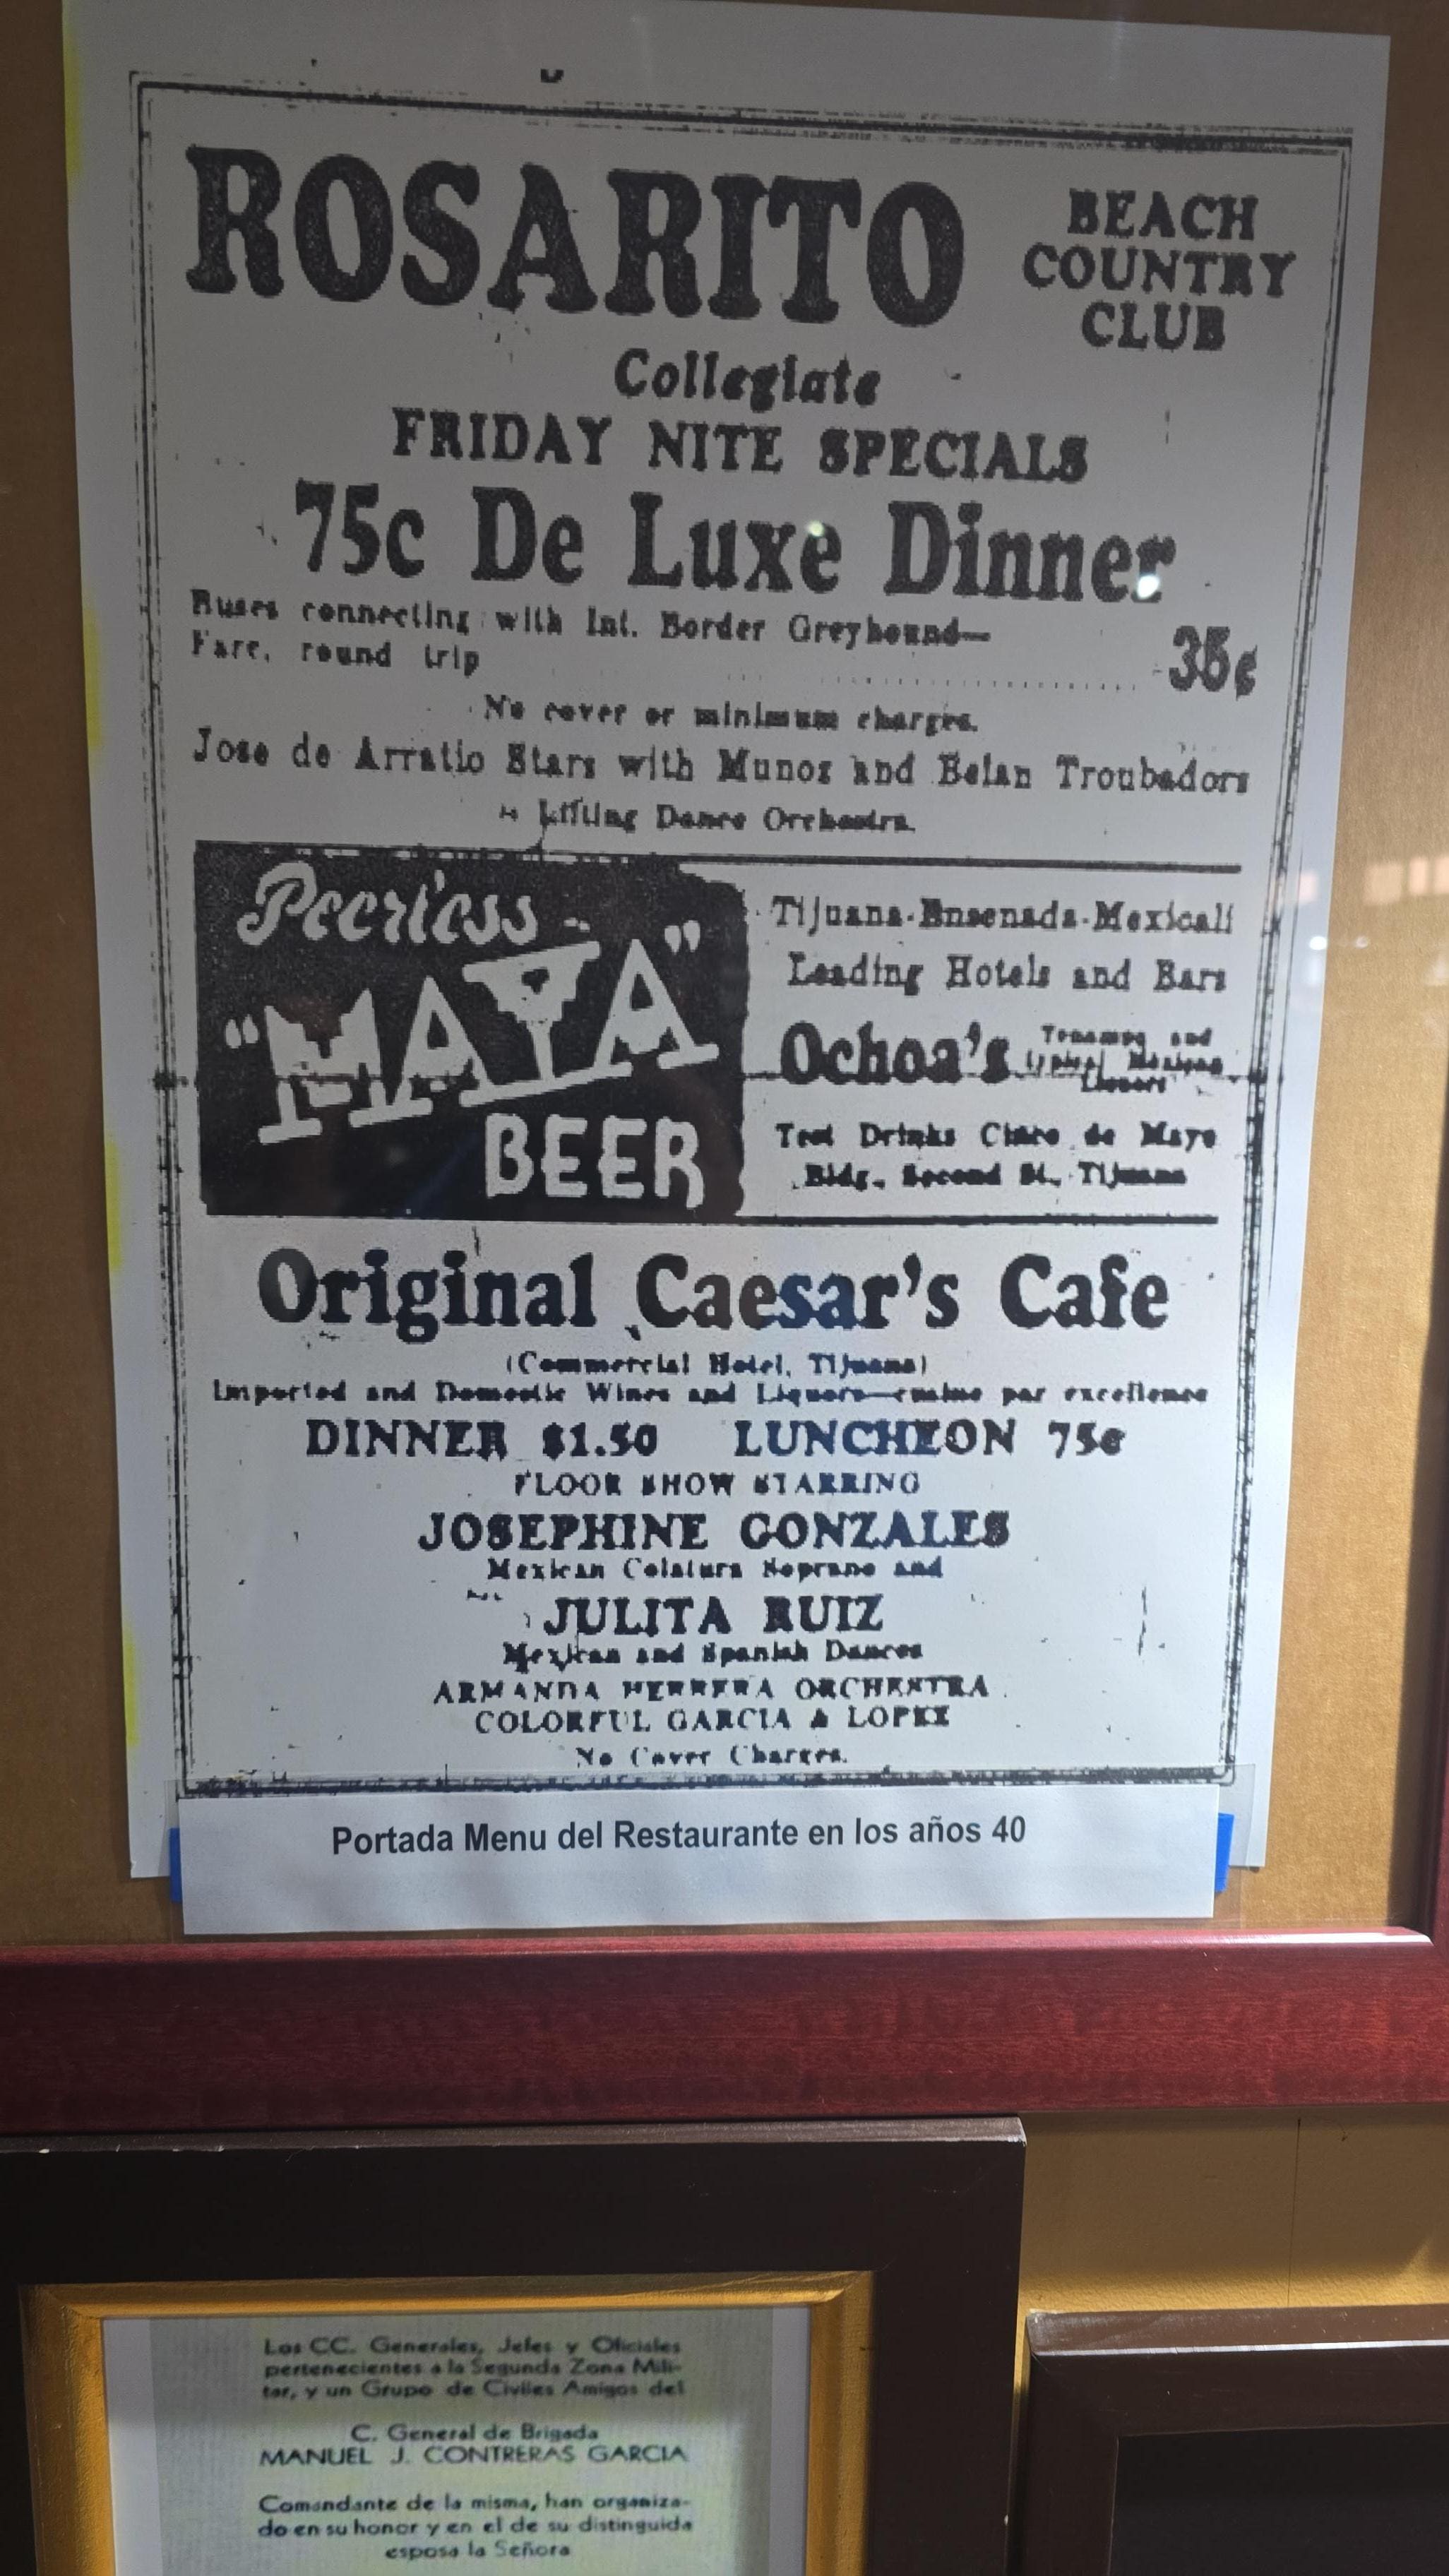 ROSARITO
BEACH
COUNTRY
CLUB
Collegiate
FRIDAY NITE SPECIALS
75c De Luxe Dinner
Buses connecting with Int. Border Greyhound—
Fare, round trip
35¢
No cover or minimum charges.
Jose de Arratio Stars with Munoz and Belan Troubadors
Lilting Dance Orchestra.
Peerless
"MAYA"
BEER
Tijuana-Ensenada-Mexicali
Leading Hotels and Bars
Ochoa's
and
Liquors
Test Drinks Cinco de Mayo
Bldg., Second St., Tijuana
Original Caesar's Cafe
(Commercial Hotel, Tijuana)
Imported and Domestic Wines and Liquors— par excellence
DINNER $1.50 LUNCHEON 75¢
FLOOR SHOW STARRING
JOSEPHINE GONZALES
Mexican Colatura Soprano and
JULITA RUIZ
Mexican and Spanish Dances
ARMANDA HERRERA ORCHESTRA
COLORFUL GARCIA & LOPEZ
No Cover Charges.
Portada Menu del Restaurante en los años 40
Los CC. Generales, Jefes y Oficiales
pertenecientes a la Segunda Zona Mili-
tar, y un Grupo de Civiles Amigos del
C. General de Brigada
MANUEL J. CONTRERAS GARCIA
Comandante de la misma, han organiza-
do en su honor y en el de su distinguida
esposa la Señora